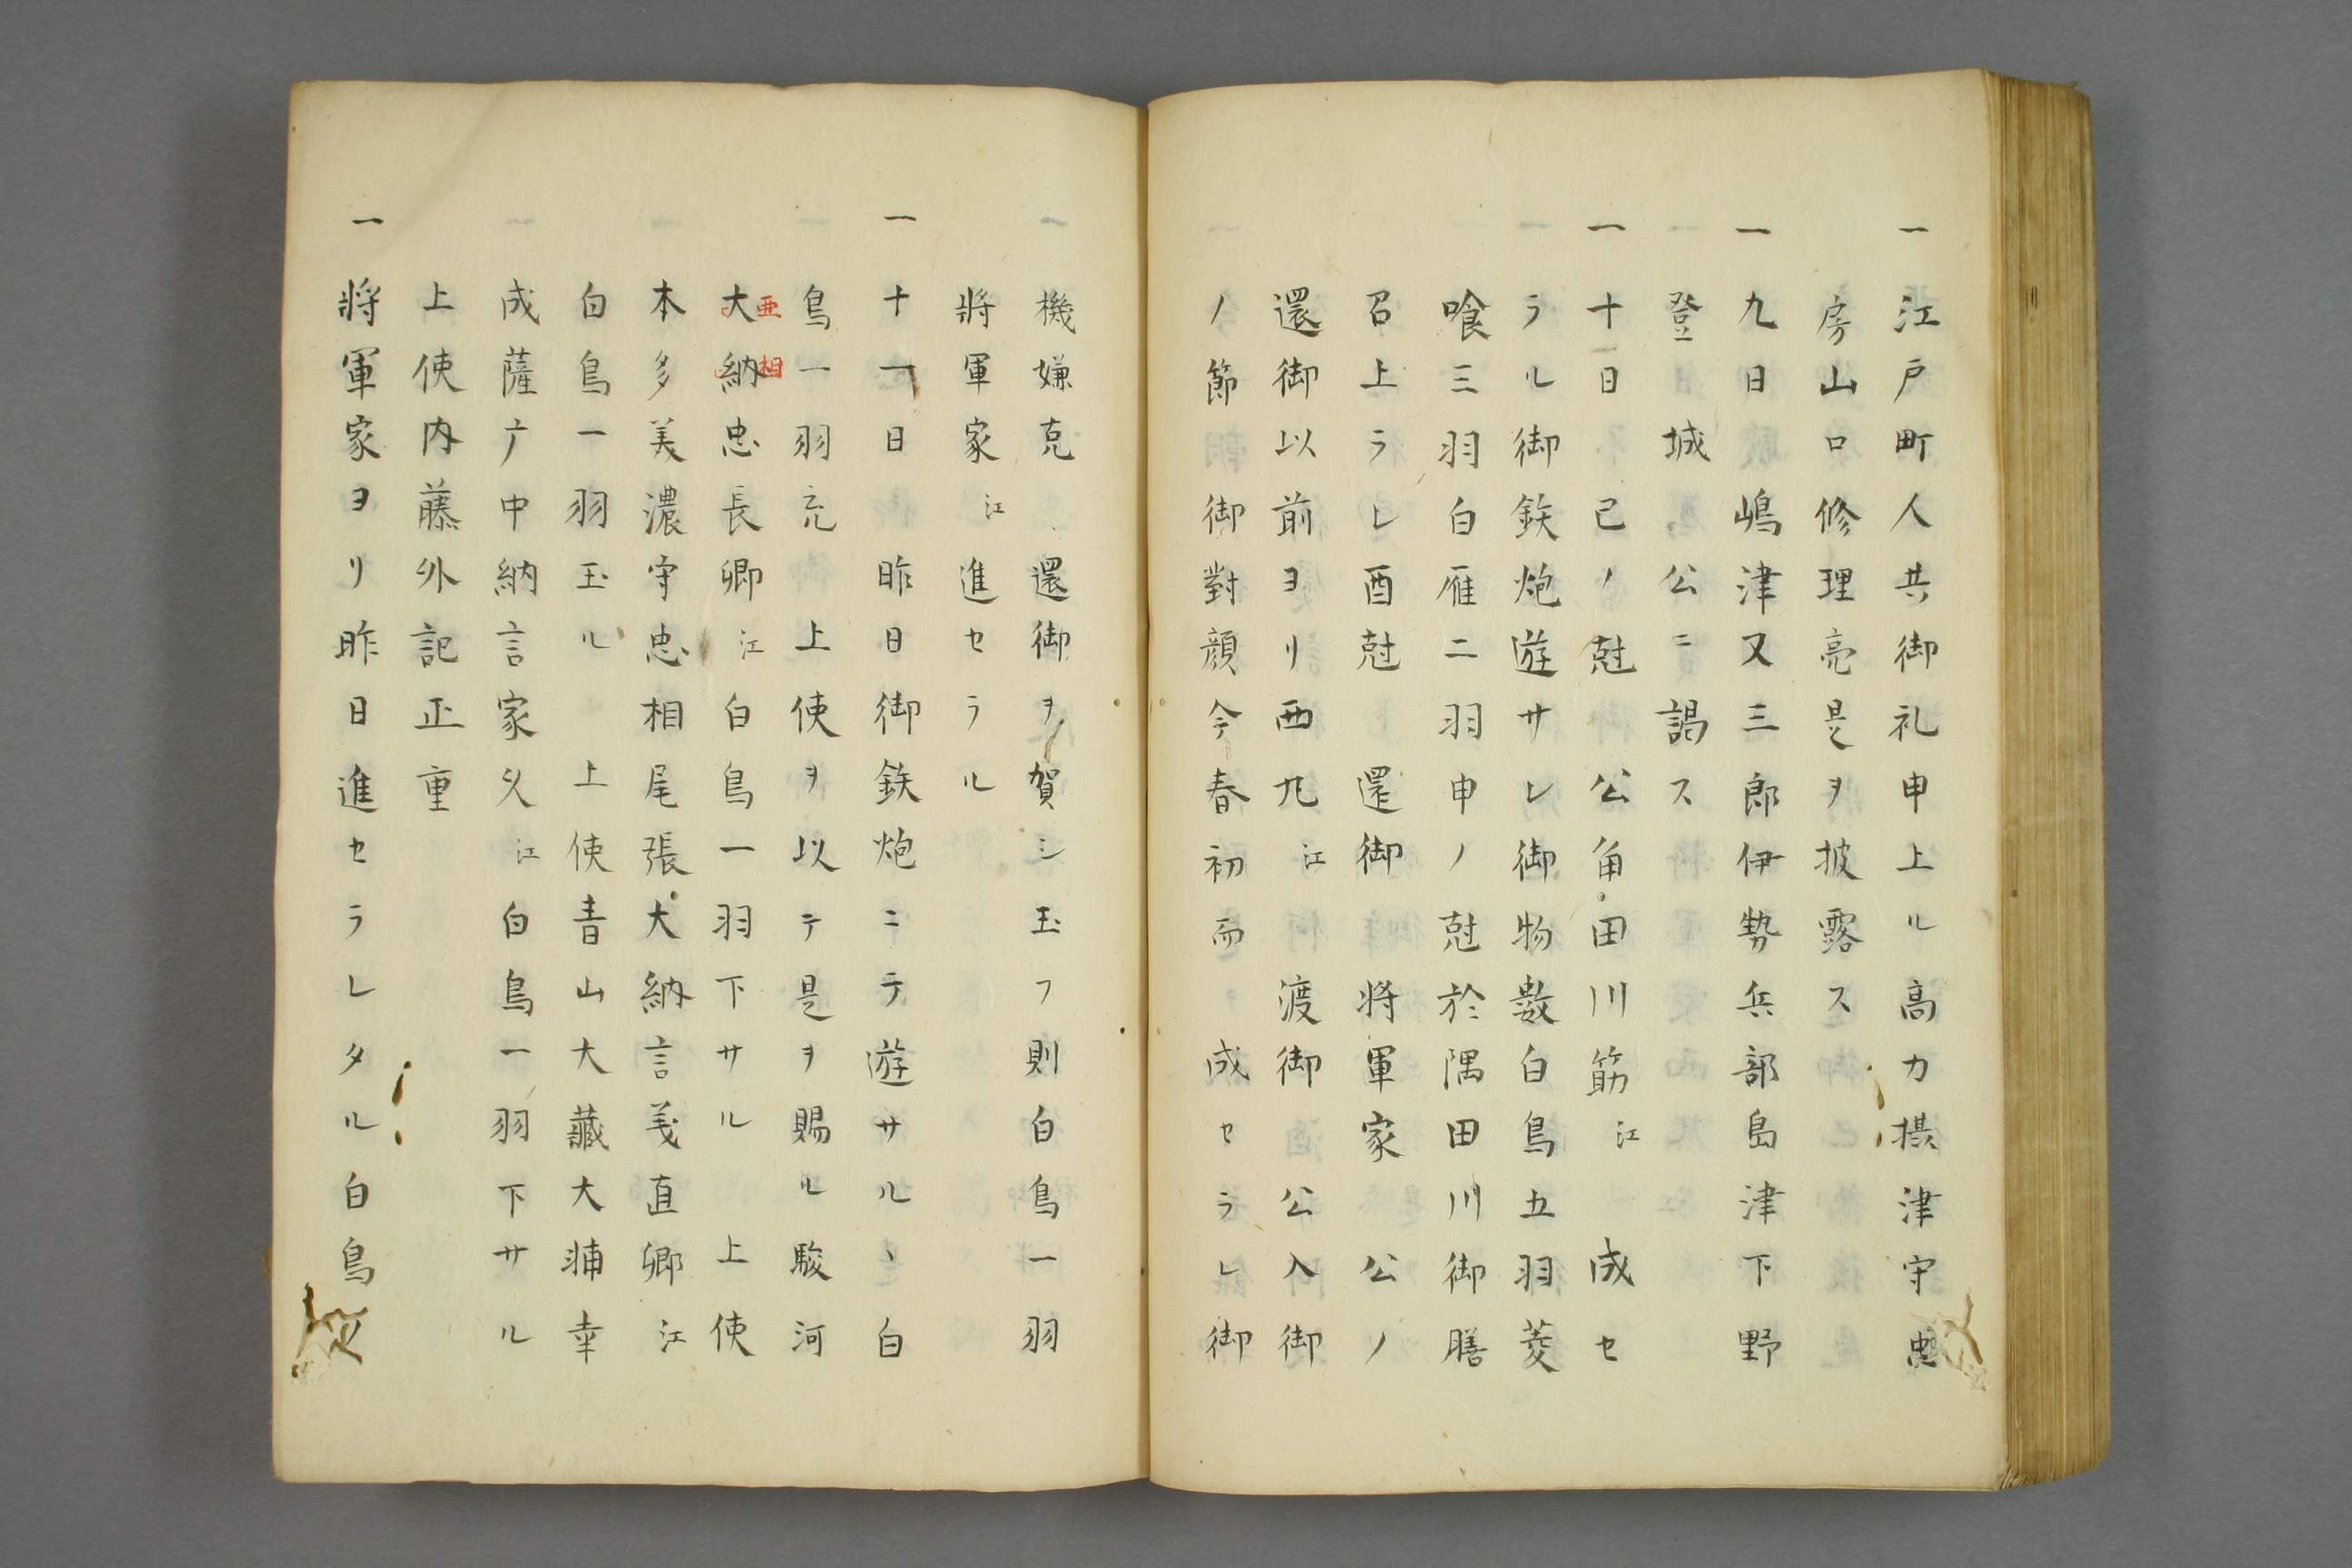 一江戸町人共御礼申上ル高力摂津守忠
房山口修理亮是ヲ披露ス
一九日嶋津又三郎伊勢兵部島津下野
登　城　公ニ　謁ス
一十日巳ノ尅　公角田川筋江　成セ
ラル御鉄炮遊サレ御物数白鳥五羽菱
喰三羽白雁二羽申ノ尅於隅田川御膳
召上ラレ酉尅　還御　将軍家　公ノ
還御以前ヨリ西丸江　渡御　公入御
ノ節御對顔今春初而　成セラレ御
機嫌克　還御ヲ賀シ玉フ則白鳥一羽
将軍家江進セラル
一十一日昨日御鉄炮ニテ遊サル丶白
鳥一羽充　上使ヲ以テ是ヲ賜ル駿河
大納忠長卿江白鳥一羽下サル　上使
亜相
本多美濃守忠相尾張大納言義直卿江
白鳥一羽玉ル　上使青山大藏大輔幸
成薩广中納言家久江白鳥一羽下サル
上使内藤外記正重
一将軍家ヨリ昨日進セラレタル白鳥之